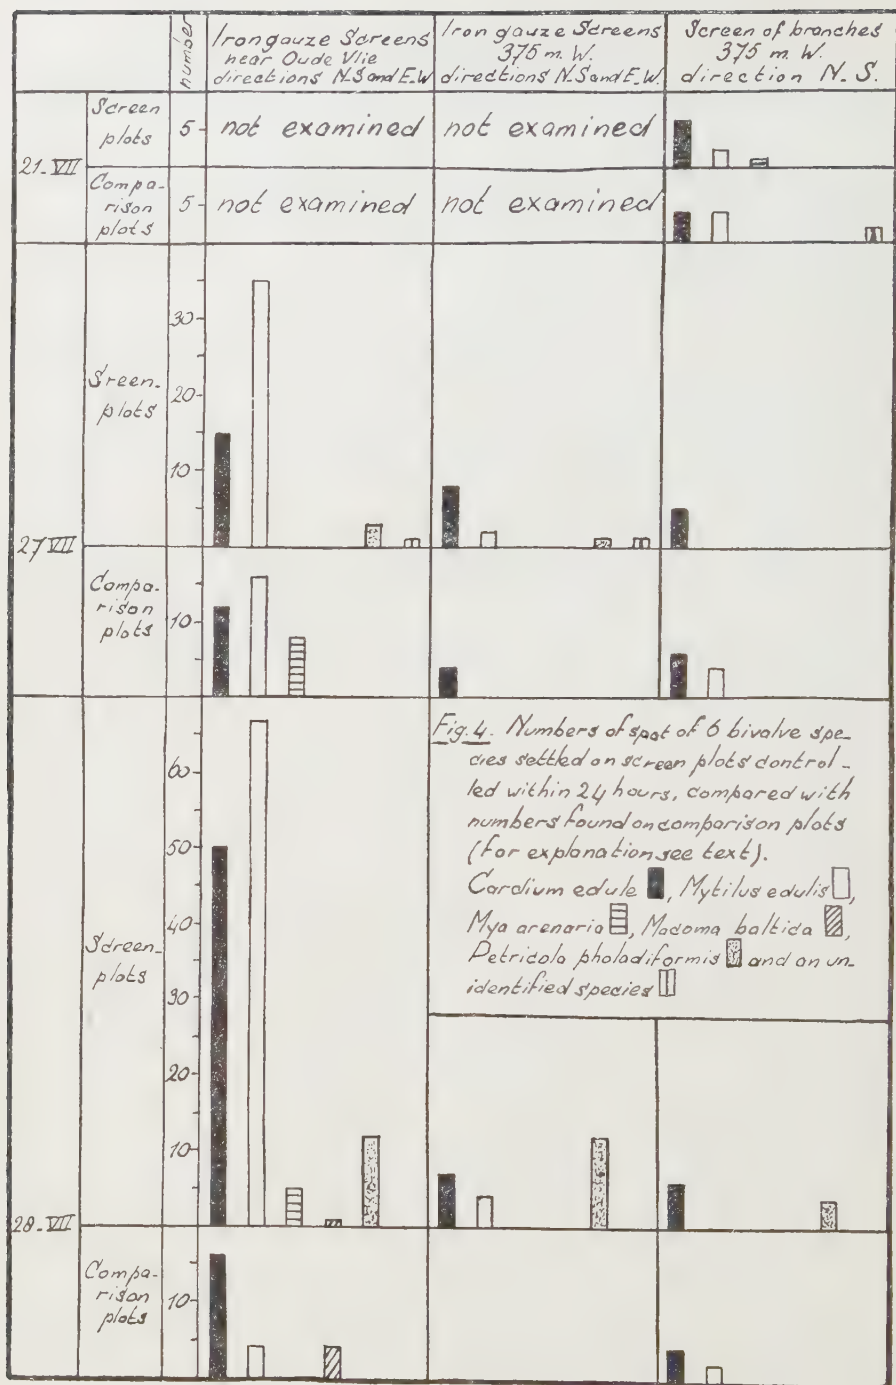 number
Iron gauze Screens
near Oude Vlie
directions N.S and E.W
Iron gauze Screens
375 m. W.
directions N.S and E.W.
Screen of branches
375 m. W.
direction N. S.
21-VII
Screen
plots
5
not examined
not examined
Compa-
rison
plots
5
not examined
not examined
27 VII
Sreen-
plots
30
20
10
Compa-
rison
plots
10
28-VII
Screen-
plots
60
50
40
30
20
10
Fig. 4. Numbers of spat of 6 bivalve spe-
cies settled on screen plots control-
led within 24 hours, compared with
numbers found on comparison plots
(for explanation see text).
Cardium edule, Mytilus edulis,
Mya arenaria, Macoma baltica,
Petricola pholadiformis and an un-
identified species
Compa-
rison
plots
10